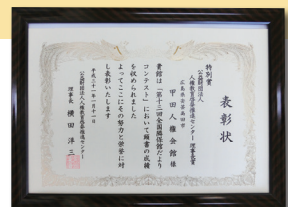 表彰状
特別賞
公益財団法人
人権教育啓発推進センター理事長賞
広島県安芸高田市
甲田人権会館 様
貴館は「第十三回全国隣保館だより
コンテスト」において頭書の成績
を収められました
よってここにその努力と栄誉に対
し表彰いたします
平成三十一年一月十一日
公益財団法人人権教育啓発推進センター
理事長 横田洋三